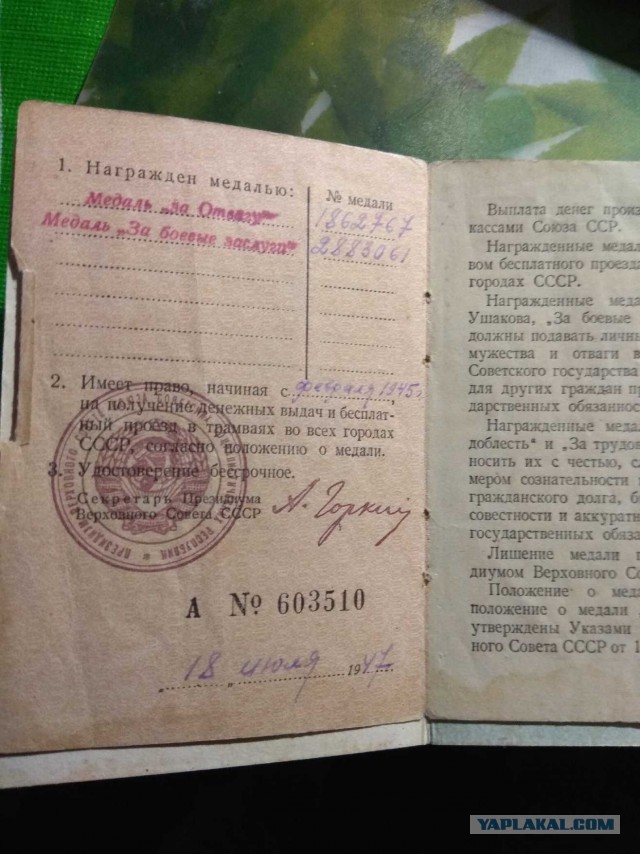 1. Награжден медалью:
№ медали
Медаль „за Отвагу“
1862767
Медаль „За боевые заслуги“
2883061
2. Имеет право, начиная с февраля 1945 г.
на получение денежных выдач и бесплат-
ный проезд в трамваях во всех городах
СССР, согласно положению о медали.
3. Удостоверение бессрочное.
Секретарь Президиума
Верховного Совета СССР
А. Горкин
А № 603510
18 июля 1947
Выплата денег произ
кассами Союза ССР.
Награжденные медал
вом бесплатного проезда
городах СССР.
Награжденные меда
Ушакова, „За боевые
должны подавать личны
мужества и отваги в
Советского государства
для других граждан пр
дарственных обязаннос
Награжденные медал
доблесть“ и „За трудов
носить их с честью, сл
мером сознательности
гражданского долга, б
совестности и аккуратн
государственных обяза
Лишение медали п
диумом Верховного Со
Положение о меда
положение о медали
утверждены Указами
ного Совета СССР от 1
YAPLAKAL.COM